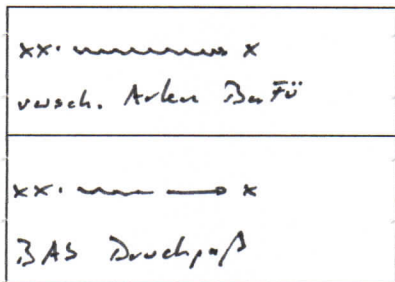 xx. x
versch. Arten BeFü
xx. x
BAS Druckpaß